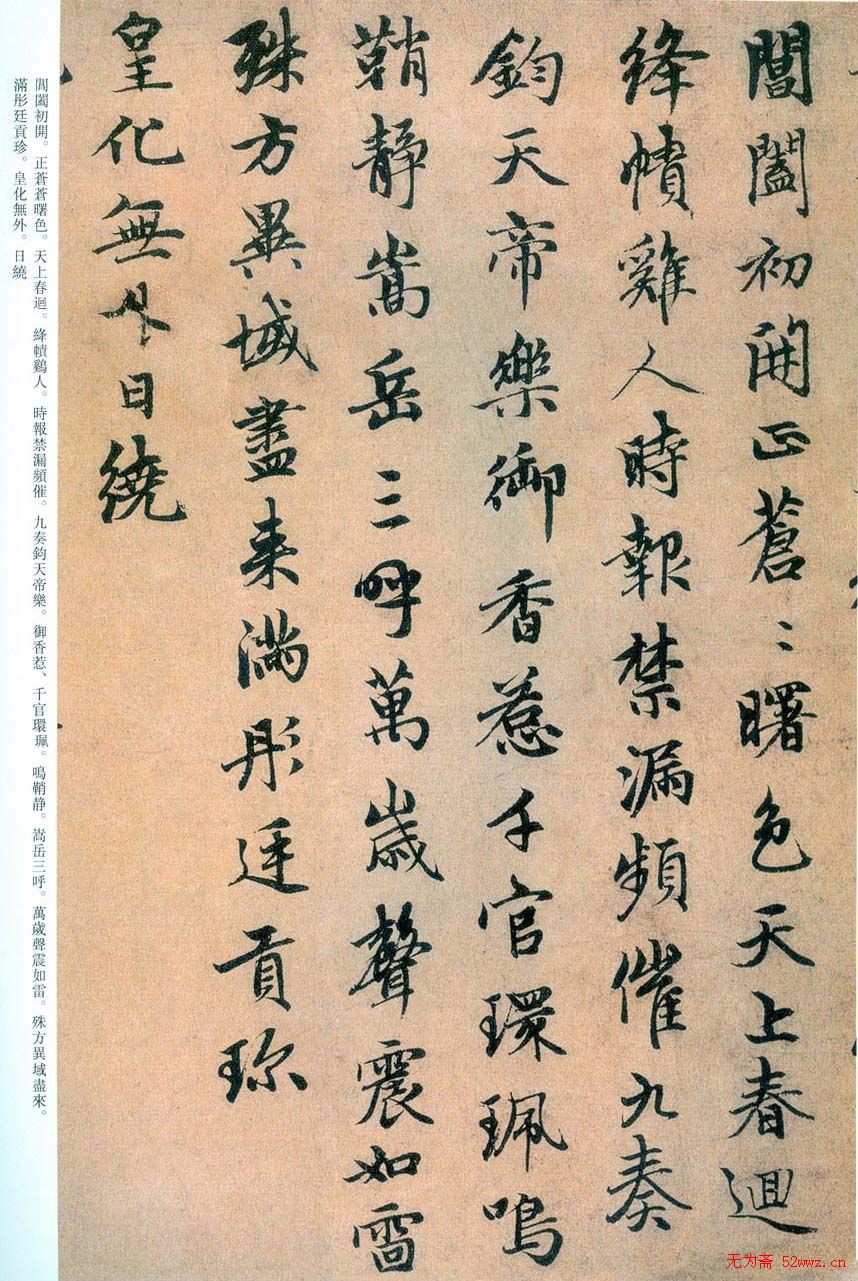 閶闔初開正蒼〻曙色天上春迴
絳幘雞人時報禁漏頻催九奏
鈞天帝樂御香惹千官環珮鳴
鞘静嵩岳三呼萬歲聲震如雷
殊方異域盡来滿彤廷貢珎
皇化無外日繞
閶闔初開。正蒼蒼曙色。天上春迴。絳幘鷄人。時報禁漏頻催。九奏鈞天帝樂。御香惹、千官環珮。鳴鞘静。嵩岳三呼。萬歲聲震如雷。殊方異域盡來。
滿彤廷貢珍。皇化無外。日繞
无为斋 52wwz.cn